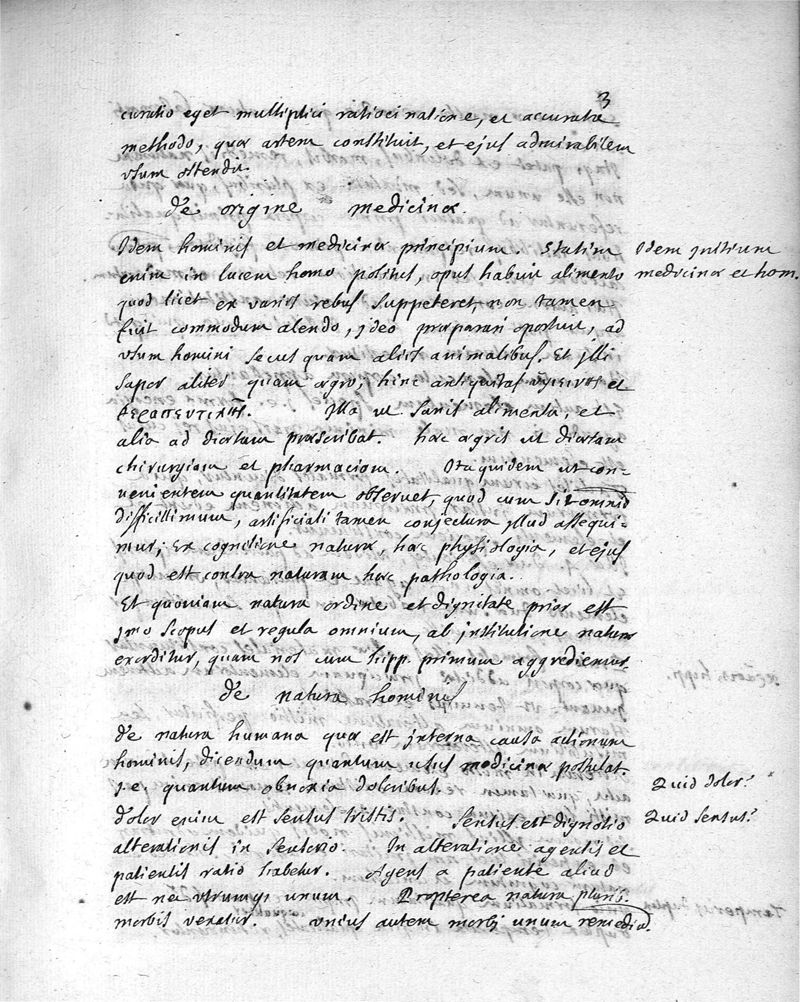 3
curatio eget multiplici ratiocinatione, et accurata
methodo, quæ artem constituit, et ejus admirabilem
vsum ostendit.
De origine medicinæ.
Idem hominis et medicinæ principium. Statim
Idem initium
enim in lucem homo positus, opus habuit alimento
medicinæ et hom.
quod licet ex variis rebus suppeteret, non tamen
fuit commodum alendo, ideo præparari oportuit, ad
vsum homini secus quam aliis animalibus. Et illi
aliter quam ægro, hinc antiquitas et
θεραπευτικης. Illa ut sanis alimenta, et
alia ad diætam præscribat. hæc ægris ut diætam
chirurgiam et pharmaciam. Ita quidem ut con-
uenientem quantitatem obseruet, quod cum sit omnio
difficillimum, artificiali tamen conjectura illud assequi-
mur; Ex cognitione naturæ, hæc physiologia, et ejus
quod est contra naturam hæc pathologia.
Et quoniam natura ordine et dignitate prior est
imo scopus et regula omnium, ab institutione naturæ
exorditur, quam nos cum hipp. primum aggrediemur.
De natura hominis
De natura humana quæ est interna causa actionum
hominis, dicendum quantum usus medicinæ postulat.
i.e. quantum obnoxia doloribus.
Quid dolor?
Dolor enim est sensus tristis. Sensus est dignotio
Quid sensus?
alterationis in sensorio. In alteratione agentis et
patientis ratio habetur. Agens a patiente aliud
est ne vtrumqs unum. Propterea natura pluris.
morbis vexatur. vnius autem morbi unum remediū.